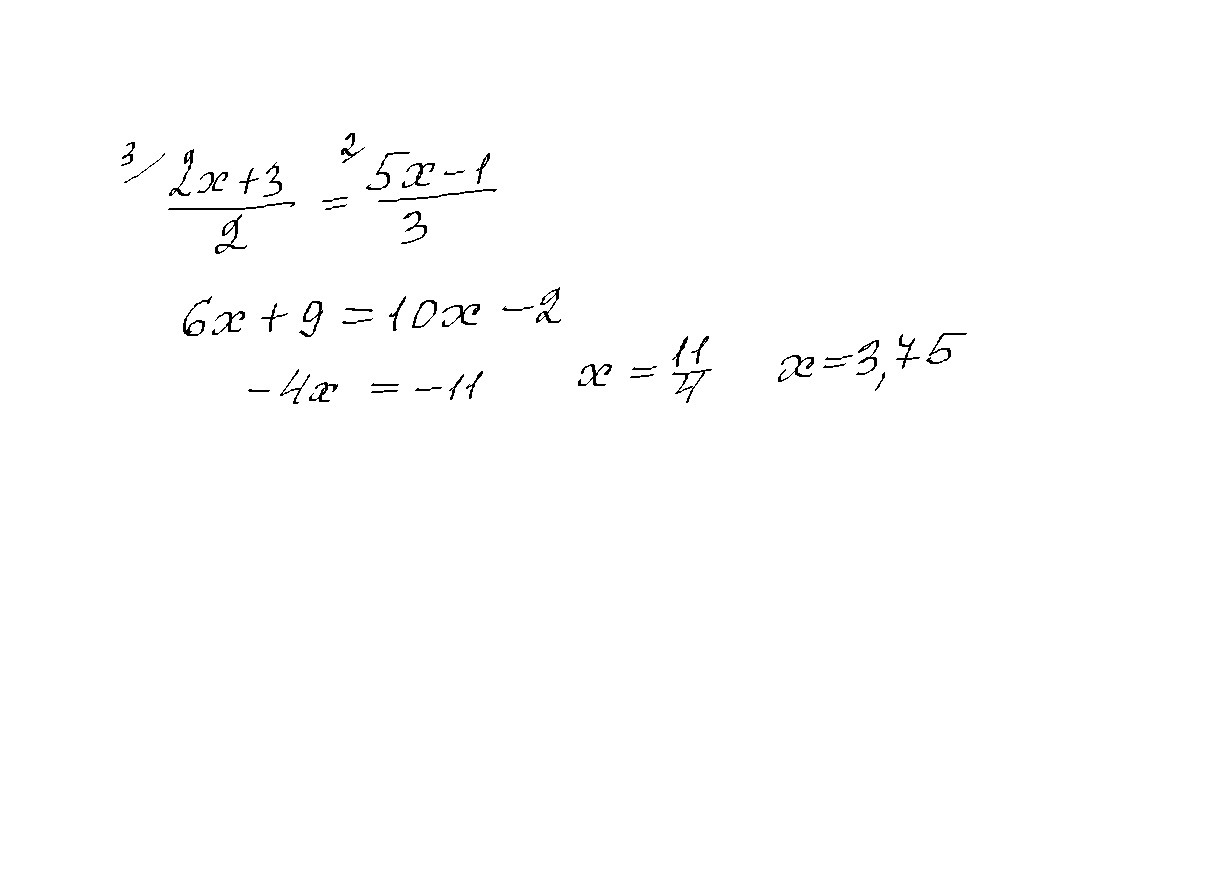 3/ 2x+3 / 2 = 2/ 5x-1 / 3
6x + 9 = 10x - 2
-4x = -11 x = 11/4 x = 3,75